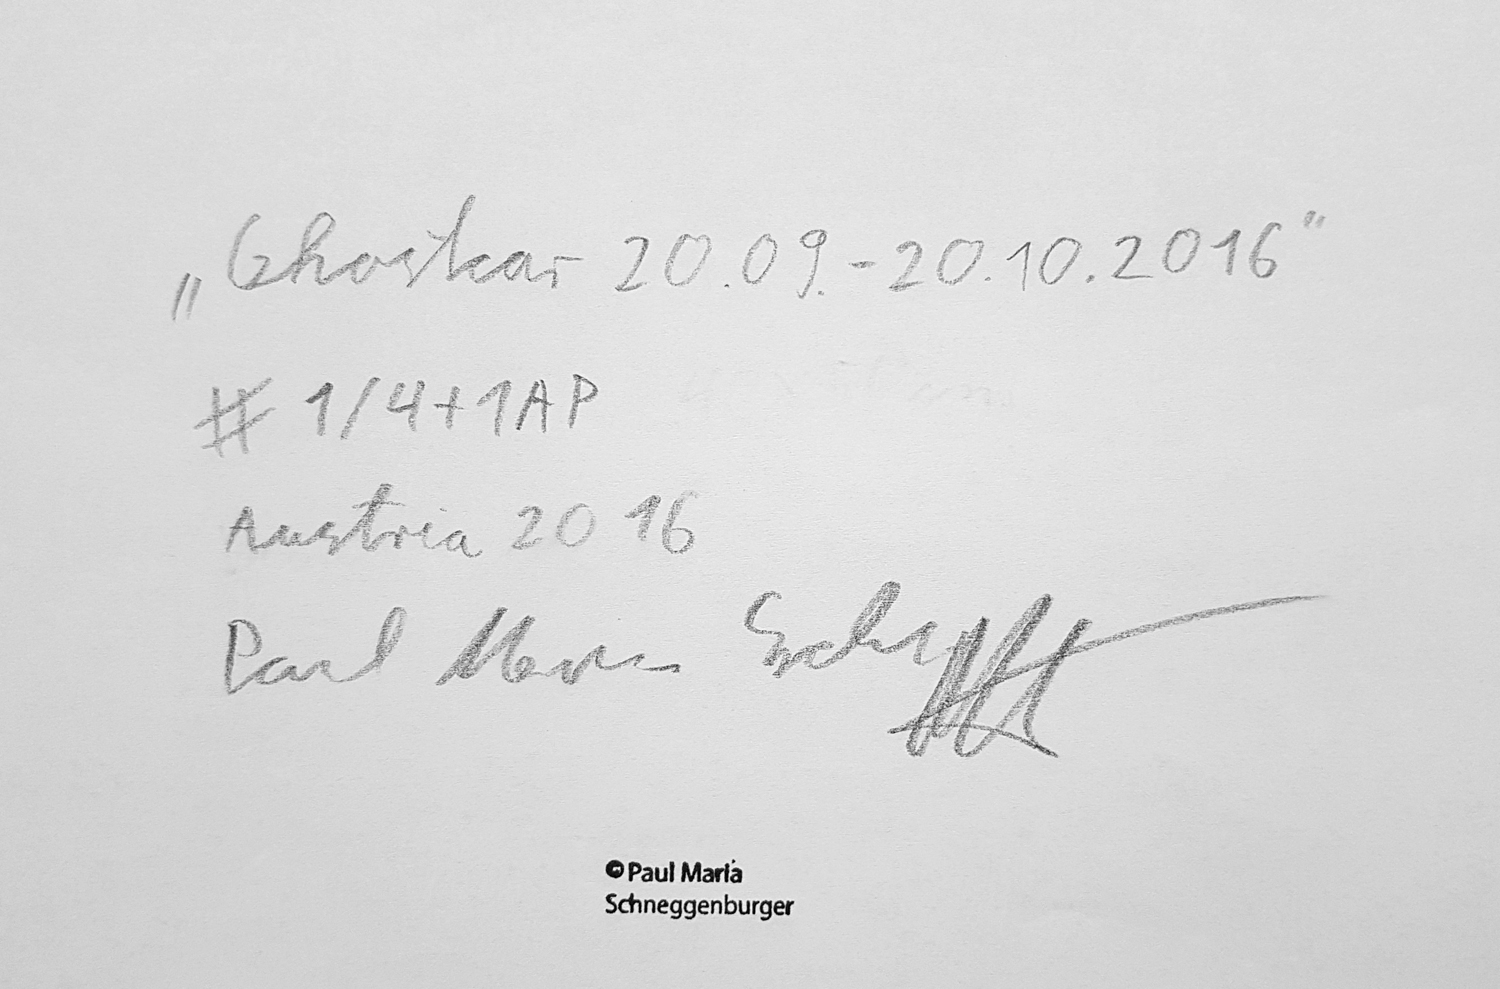 „Ghostcar 20.09.-20.10.2016"
# 1/4+1AP
Austria 2016
Paul Maria
© Paul Maria
Schneggenburger